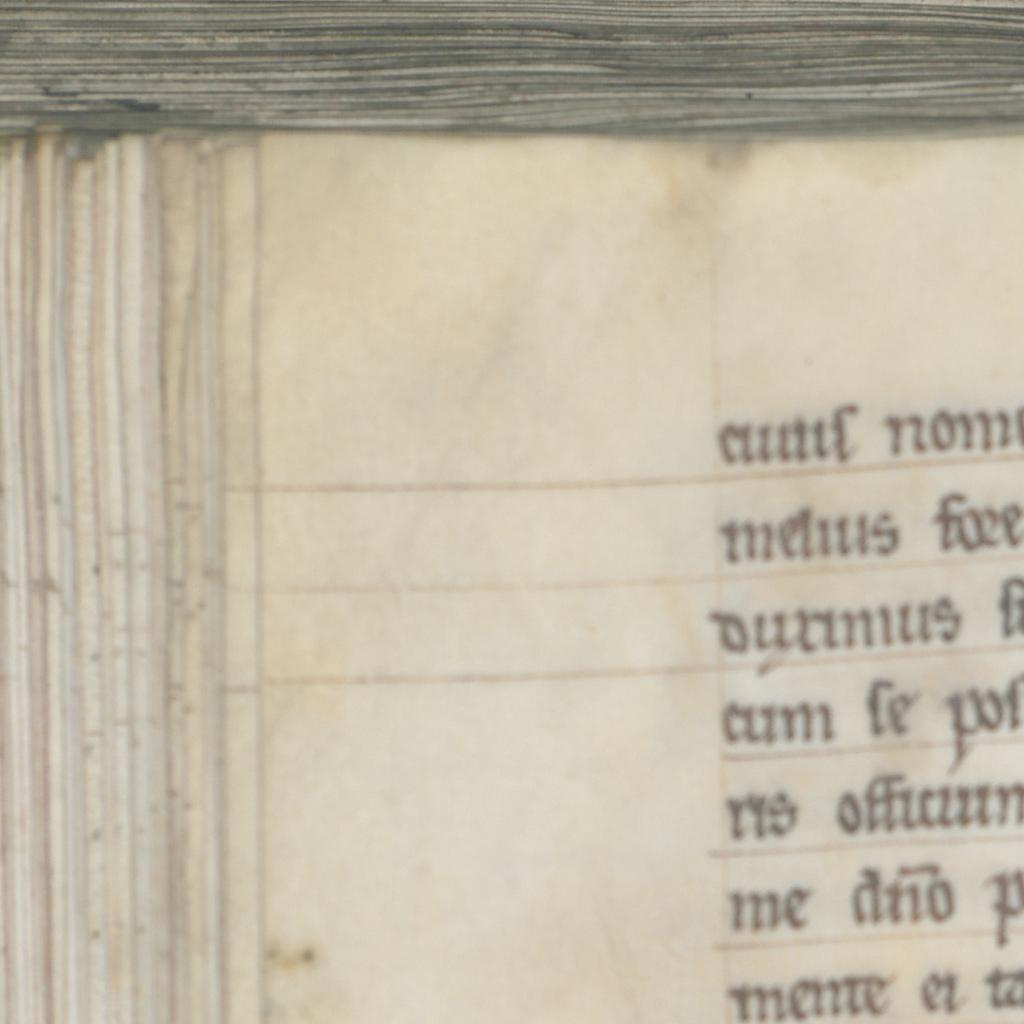 cuius nom
melius fore
duximus
cum se pos
ris officium
me dño p
mente et ta